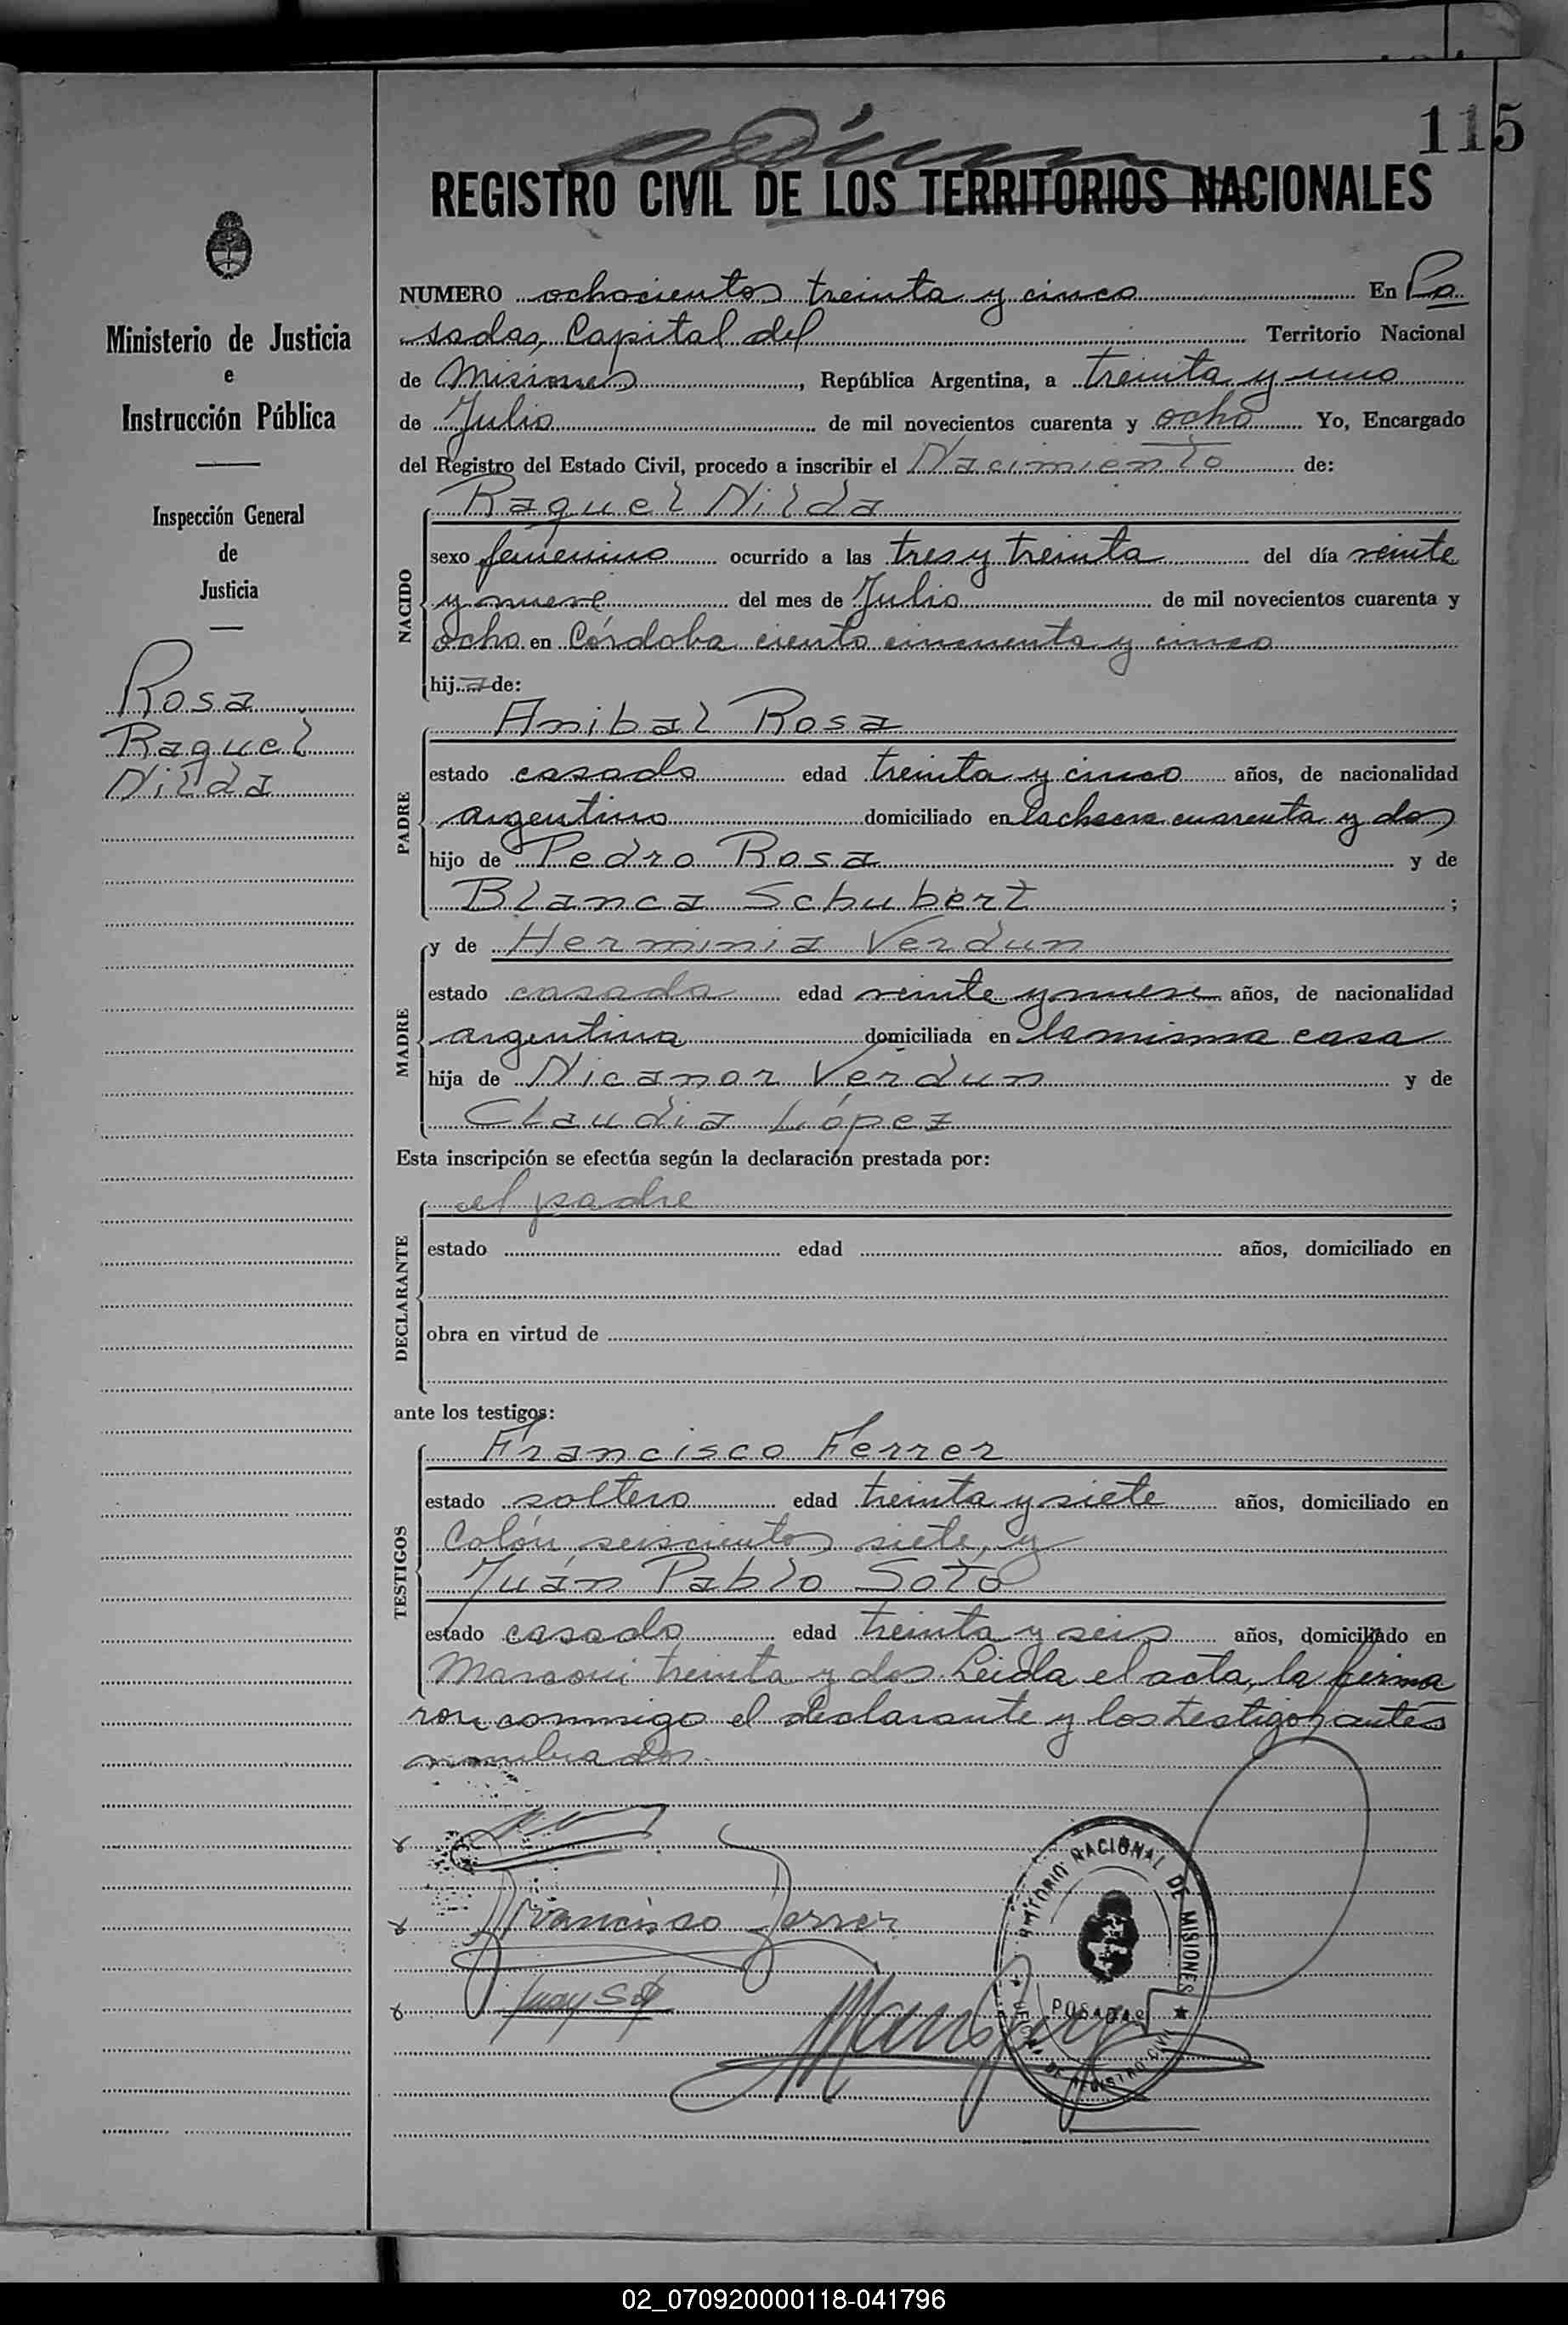 115
REGISTRO CIVIL DE LOS TERRITORIOS NACIONALES
Ministerio de Justicia
e
Instrucción Pública
Inspección General
de
Justicia
Rosa
Raquel
Nilda
NUMERO ochocientos treinta y cinco En Po
sadas, Capital del Territorio Nacional
de Misiones, República Argentina, a treinta y uno
de Julio de mil novecientos cuarenta y ocho Yo, Encargado
del Registro del Estado Civil, procedo a inscribir el Nacimiento de:
NACIDO
Raquel Nilda
sexo femenino ocurrido a las tres y treinta del día veinte
y nueve del mes de Julio de mil novecientos cuarenta y
ocho en Córdoba ciento cincuenta y cinco
hija de:
PADRE
Anibal Rosa
estado casado edad treinta y cinco años, de nacionalidad
argentino domiciliado en la chacra cuarenta y dos
hijo de Pedro Rosa y de
Blanca Schubert;
MADRE
y de Herminia Verdun
estado casada edad veinte y nueve años, de nacionalidad
argentina domiciliada en la misma casa
hija de Nicanor Verdun y de
Claudia López
Esta inscripción se efectúa según la declaración prestada por:
DECLARANTE
el padre
estado edad años, domiciliado en
obra en virtud de
ante los testigos:
TESTIGOS
Francisco Ferrer
estado soltero edad treinta y siete años, domiciliado en
Colón, seiscientos siete, y
Juán Pablo Soto
estado casado edad treinta y seis años, domiciliado en
Marconi treinta y dos. Leida el acta, la firma
ron conmigo el declarante y los testigos antes
nombrados.
Francisco Ferrer
TERRITORIO NACIONAL DE MISIONES
POSADAS
REGISTRO CIVIL
02_070920000118-041796